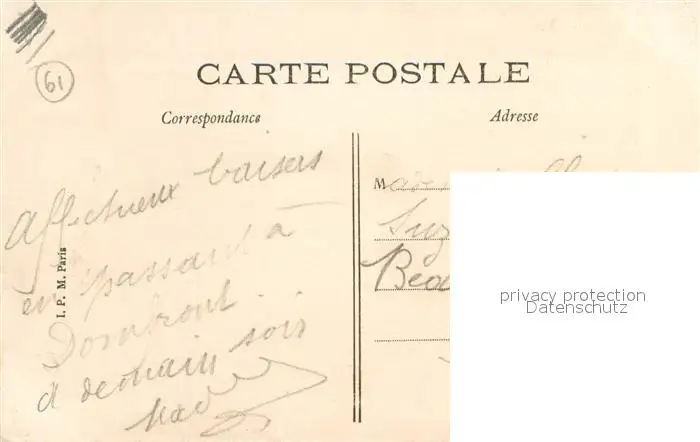 61
CARTE POSTALE
Correspondance
Adresse
Affectueux baisers
en passant à
Domfront
à demain soir
I. P. M. Paris
M
Suz
privacy protection
Datenschutz